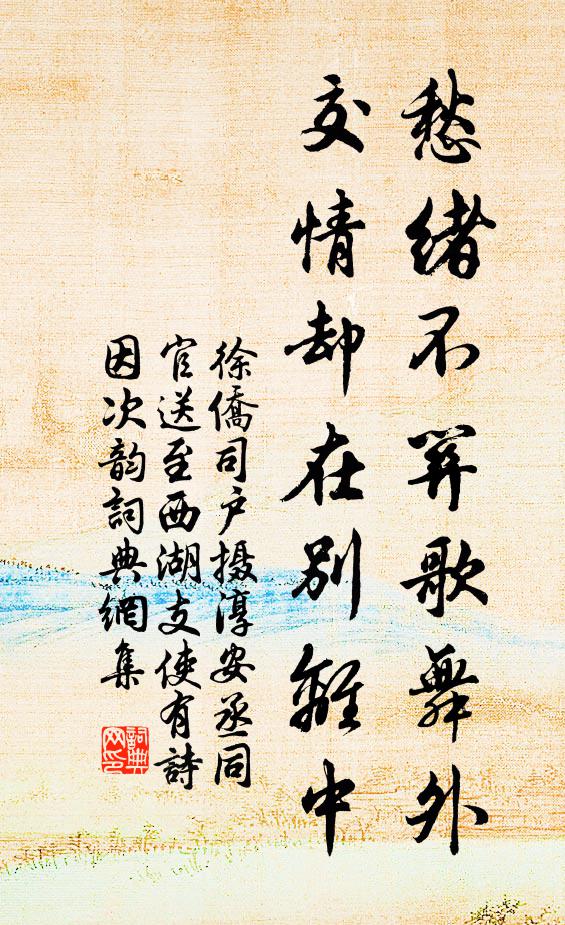 愁緒不關歌舞外
交情却在別離中
徐僑司户攝淳安丞同
官送至西湖支使有詩
因次韵詞典網集
詞典
网印